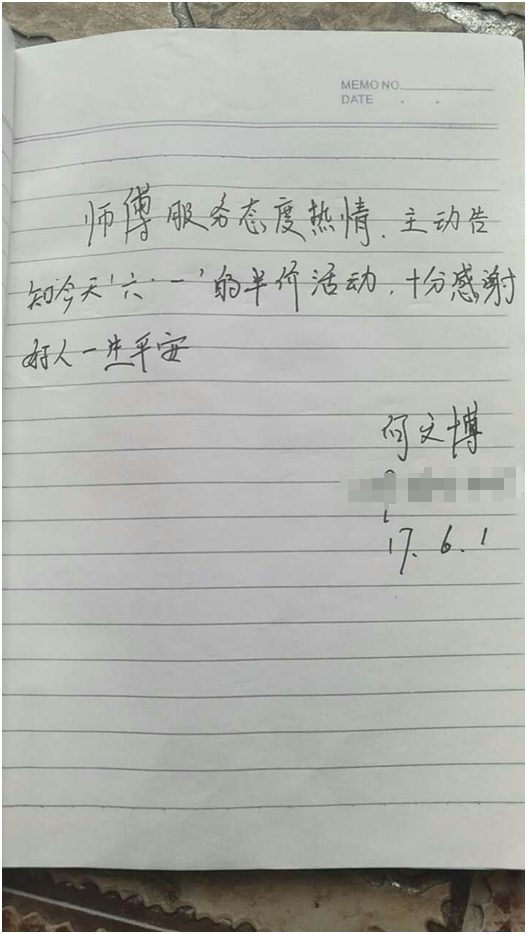 MEMO NO.
DATE . .
师傅服务态度热情.主动告
知今天'六·一'的半价活动.十分感谢
好人一生平安
何文博
17.6.1